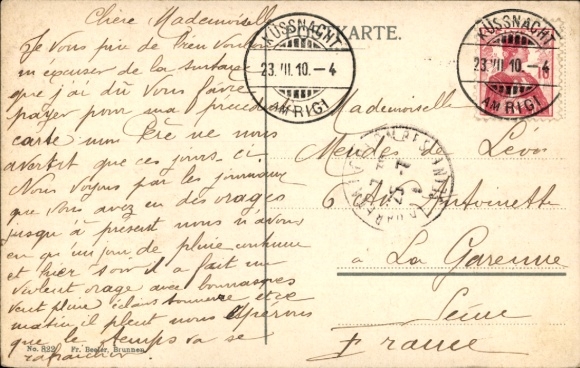 Chère Mademoiselle
POSTKARTE.
Je vous prie de bien vouloir
m'excuser de la surtaxe
que j'ai dû vous faire
payer pour ma précéd
carte mon Père ne nous
avertit que ces jours-ci
Nous voyons par les journaux
que vous avez eu des orages
jusqu'à présent nous n'avons
eu qu'un jour de pluie continue
et hier soir il a fait un
violent orage avec bourrasques
vent pluie éclairs tonnerre et ce
matin il pleut nous espérons
que le temps va se
rafraîchir
KÜSSNACHT
23.VII.10.-4
AM RIGI
KÜSSNACHT
23.VII.10.-4
AM RIGI
Mademoiselle
Mendes de Léon
6 Av. Antoinette
à La Garenne
Seine
France
No. 822 Fr. Beeler, Brunnen